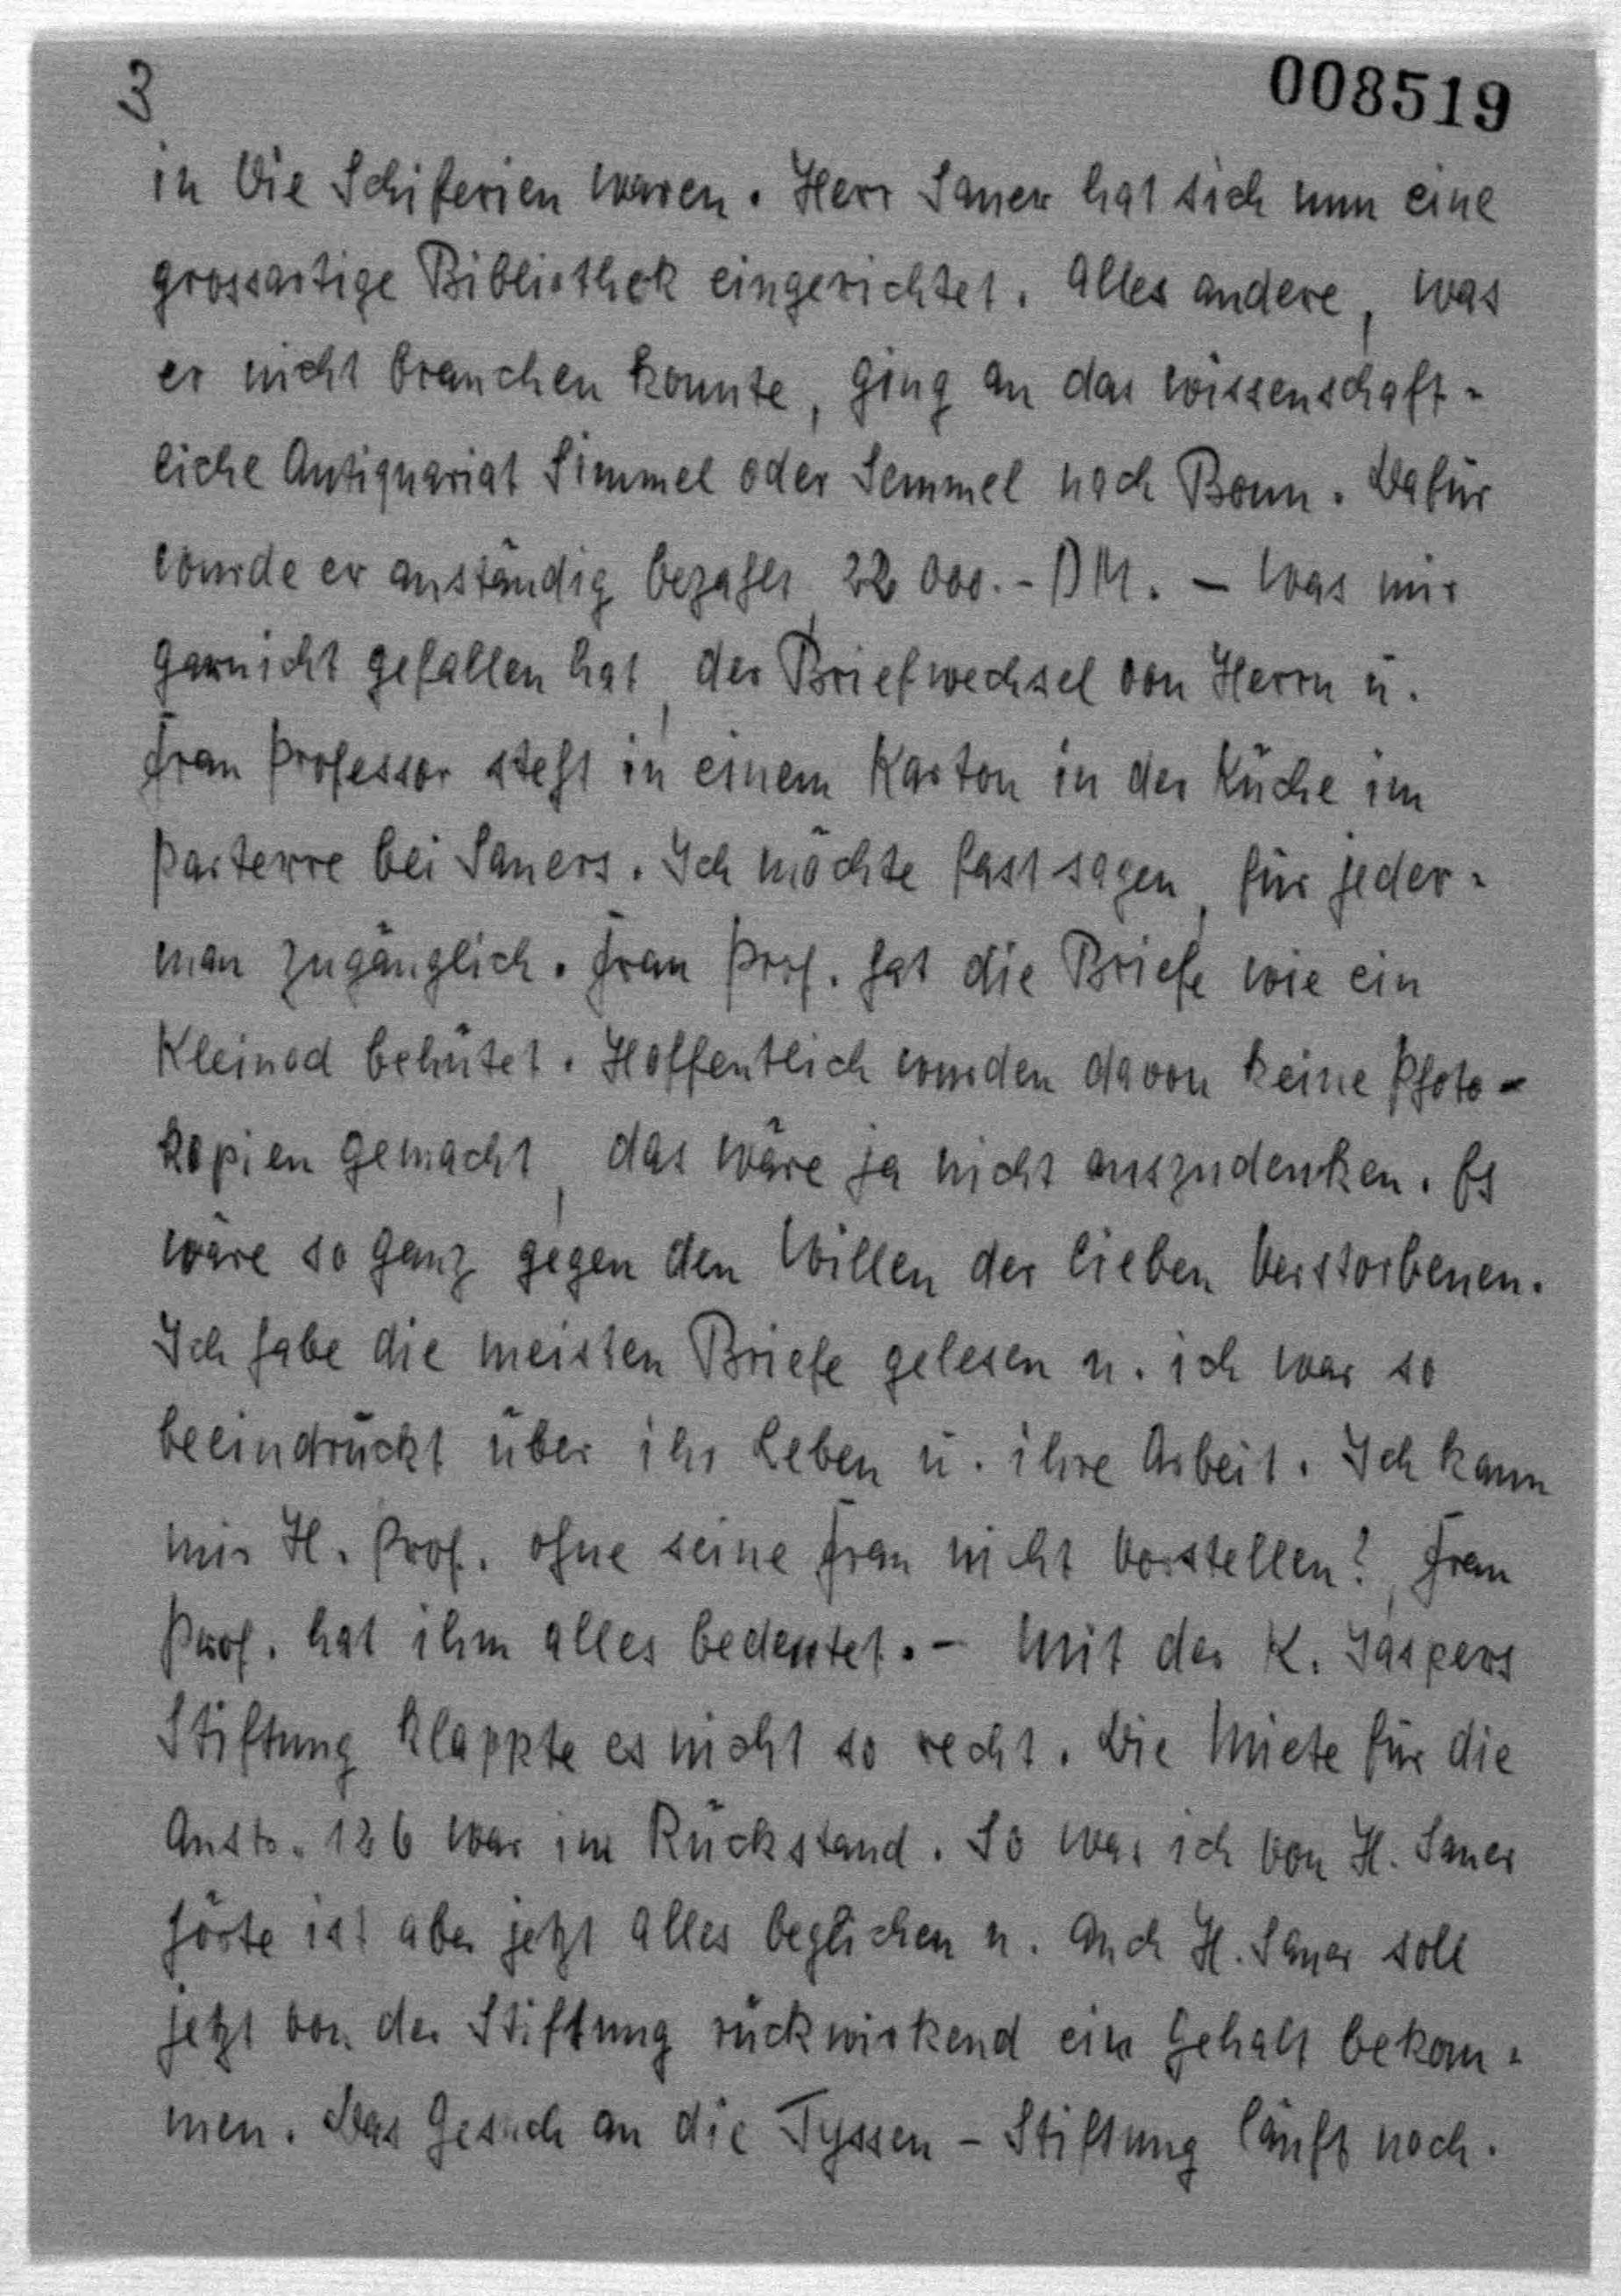 3
008519
in die Schiferien waren. Herr Saner hat sich nun eine
grossartige Bibliothek eingerichtet. Alles andere, was
er nicht brauchen konnte, ging an das wissenschaft-
liche Antiquariat Simmel oder Semmel nach Bonn. Dafür
wurde er anständig bezahlt, 22 000.- DM. – Was mir
garnicht gefallen hat, der Briefwechsel von Herrn u.
Frau Professor steht in einem Karton in der Küche im
Parterre bei Saners. Ich möchte fast sagen, für jeder-
man zugänglich. Frau Prof. hat die Briefe wie ein
Kleinod behütet. Hoffentlich wurden davon keine Photo-
kopien gemacht, das wäre ja nicht auszudenken. Es
wäre so ganz gegen den Willen der lieben Verstorbenen.
Ich habe die meisten Briefe gelesen u. ich war so
beeindruckt über ihr Leben u. ihre Arbeit. Ich kann
mir H. Prof. ohne seine Frau nicht vorstellen?, Frau
Prof. hat ihm alles bedeutet. – Mit der K. Jaspers
Stiftung klappte es nicht so recht. Die Miete für die
Austr. 126 war im Rückstand. So was ich von H. Saner
hörte ist aber jetzt alles beglichen u. auch H. Saner soll
jetzt von der Stiftung rückwirkend ein Gehalt bekom-
men. Das Gesuch an die Tyssen – Stiftung läuft noch.